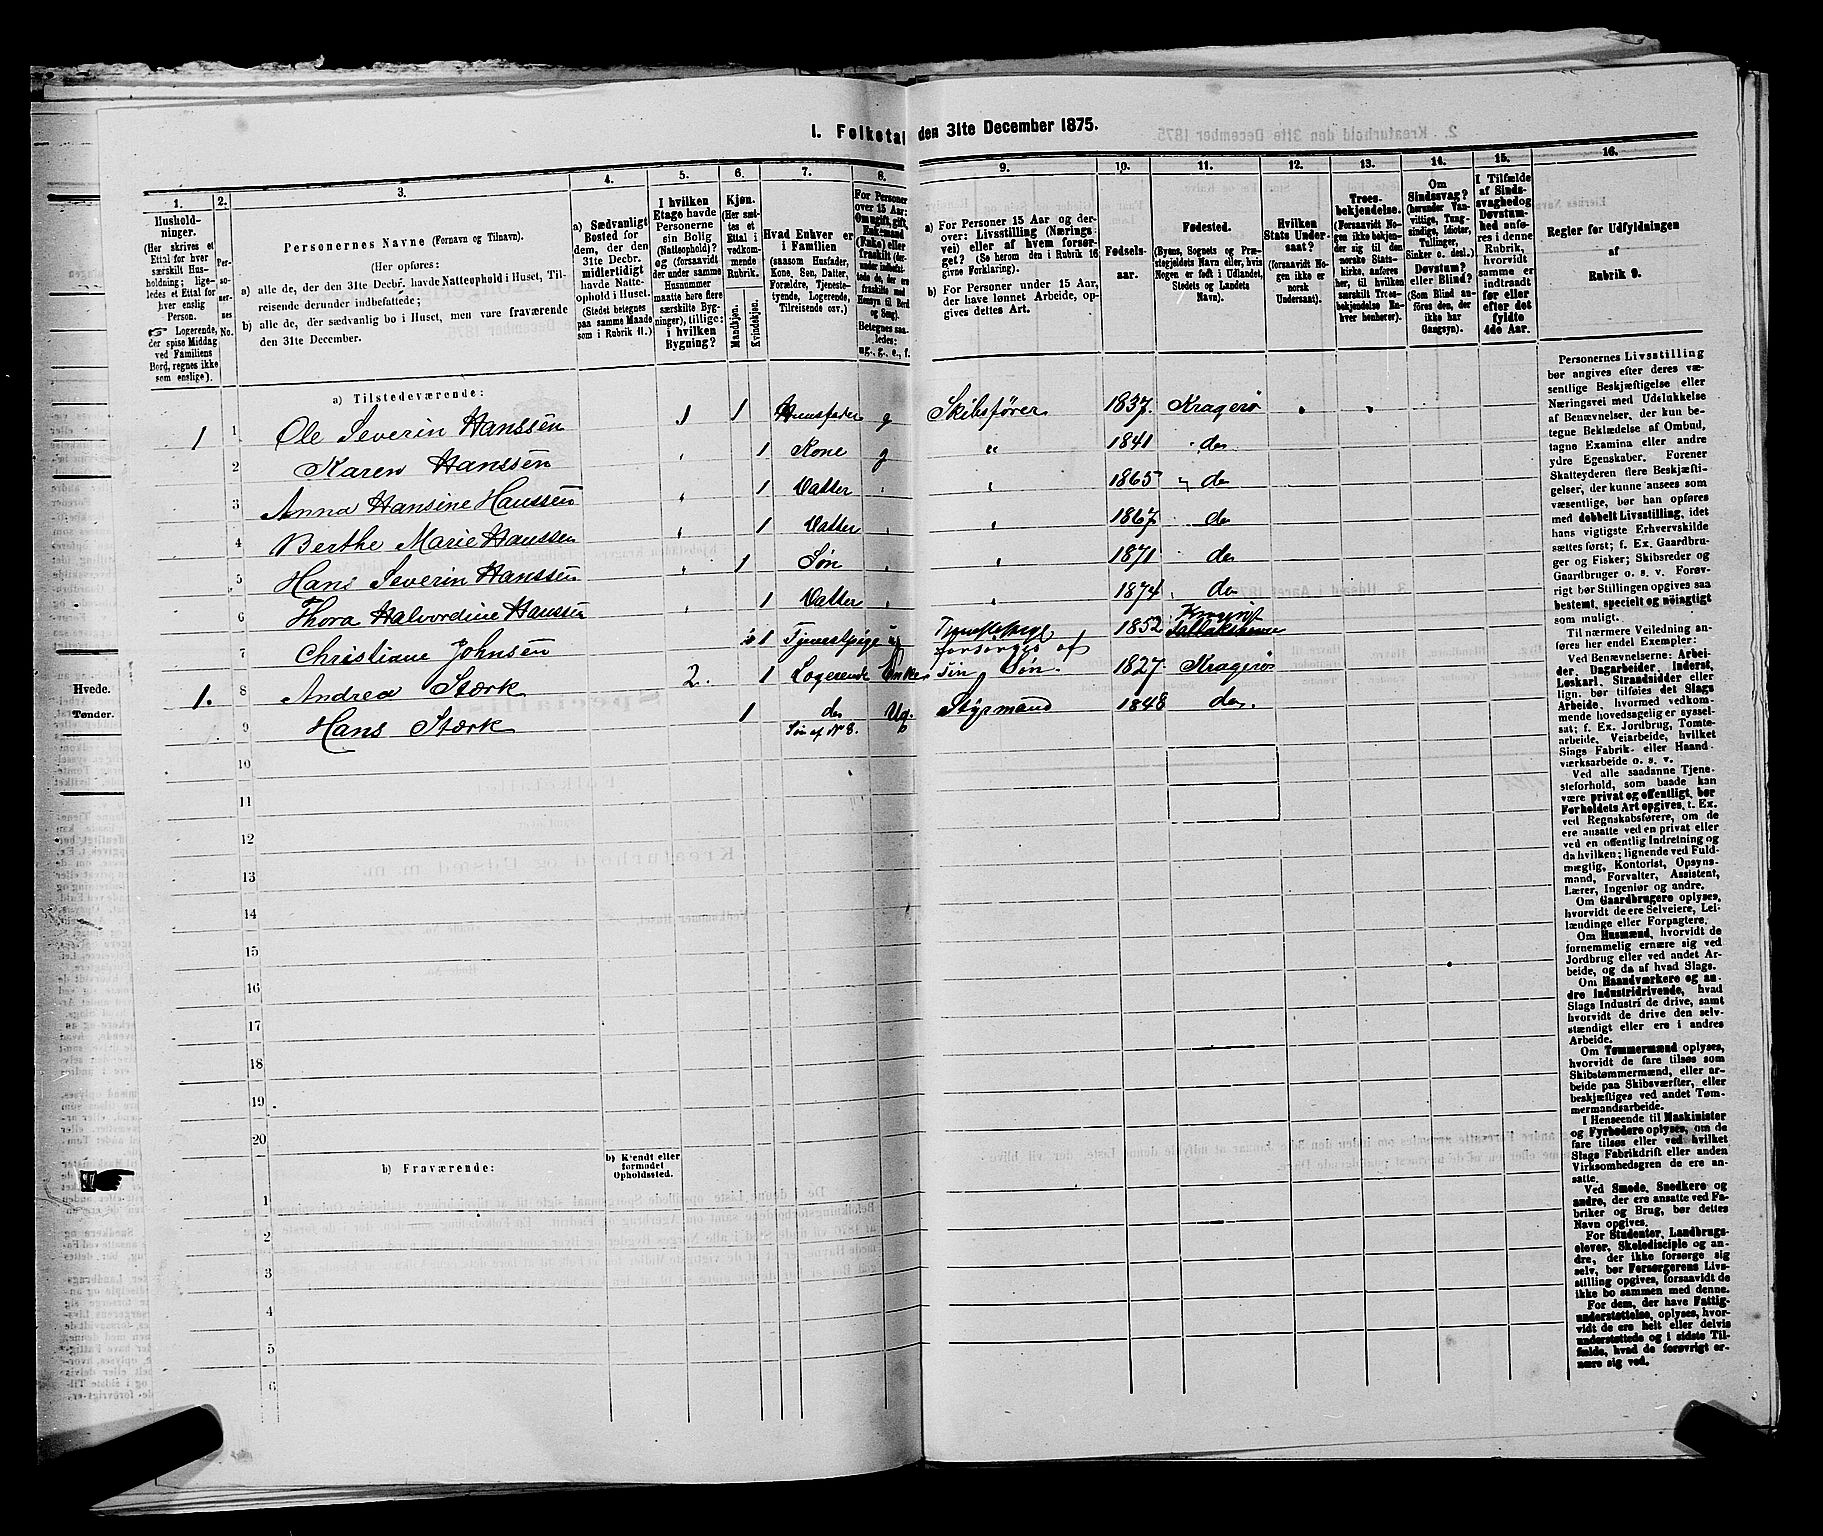 I. Folketal den 31te December 1875.
1.
2.
3.
4.
5.
6.
7.
8.
9.
10.
11.
12.
13.
14.
15.
16.
Husholdninger.
(Her skrives et Ettal for hver særskilt Husholdning; ligeledes et Ettal for hver enslig Person.
☞ Logerende, der spise Middag ved Familiens Bord, regnes ikke som enslige).
Personernes No.
Personernes Navne (Fornavn og Tilnavn).
(Her opføres:
a) alle de, der den 31te Decbr. havde Natteophold i Huset, Tilreisende derunder indbefattede;
b) alle de, der sædvanlig bo i Huset, men vare fraværende den 31te December.
a) Sædvanligt Bosted for dem, der den 31te Decbr. midlertidigt havde Natteophold i Huset. (Stedet betegnes paa samme Maade som i Rubrik 11.)
I hvilken Etage havde Personerne sin Bolig (Natteophold)? og (forsaavidt der under samme Husnummer maatte høre flere særskilte Bygninger), tillige: i hvilken Bygning?
Kjøn.
(Her sættes et Ettal i vedkommende Rubrik.
Mandkjøn.
Kvindekjøn.
Hvad Enhver er i Familien
(saasom Husfader, Kone, Søn, Datter, Forældre, Tjenestetyende, Logerende, Tilreisende osv.)
For Personer over 15 Aar: Om ugift, gift, Enkemand (Enke) eller fraskilt
Betegnes saaledes: ug., g., e., f.
a) For Personer 15 Aar og derover: Livsstilling (Næringsvei) eller af hvem forsørget? (Se herom den i Rubrik 16 givne Forklaring).
b) For Personer under 15 Aar, der have lønnet Arbeide, opgives dettes Art.
Fødselsaar.
Fødested.
(Byens, Sognets og Præstegjeldets Navn eller, hvis Nogen er født i Udlandet, Stedets og Landets Navn).
Hvilken Stats Undersaat?
(forsaavidt Nogen ikke er norsk Undersaat).
Troesbekjendelse.
(Forsaavidt Nogen ikke bekjender sig til den norske Statskirke, anføres her, til hvilken særskilt Troesbekjendelse Enhver henhører).
Om Sindssvag? (herunder Vanvittige, Tungsindige, Idioter, Tullinger, Sinker o. desl.)
Døvstum? eller Blind?
(Som Blind anføres den, der ikke har Gangsyn).
I Tilfælde af Sindssvaghed og Døvstumhed anføres i denne Rubrik, hvorvidt samme er indtraadt før eller efter det fyldte 4de Aar.
Regler for Udfyldningen af Rubrik 9.
a) Tilstedeværende:
1 1 Ole Severin Hanssen 1 1 Huusfader g Skibsfører 1837 Kragerø
2 Karen Hanssen 1 Kone g 1841 do
3 Anna Hansine Hanssen 1 Datter 1865 do
4 Berthe Marie Hanssen 1 Datter 1867 do
5 Hans Severin Hanssen 1 Søn 1871 do
6 Thora Halvordine Hanssen 1 Datter 1874 do
7 Christiane Johnsen 1 Tjenestpige 1852
1. 8 Andrea Stærk 2. 1 Logerende Enke forsørges af sin Søn. 1827 Kragerø
9 Hans Stærk 1 do Søn af N 8. Ug. Styrmand 1848 do.
10
11
12
13
14
15
16
17
18
19
20
b) Fraværende:
b) Kjendt eller formodet Opholdssted.
1
2
3
4
5
6
Hvede.
Tønder.
Personernes Livsstilling bør angives efter deres væsentlige Beskjæftigelse eller Næringsvei med Udelukkelse af Benævnelser, der kun betegne Bekladelse af Ombud, tagne Examina eller andre ydre Egenskaber. Forener Skatteyderen flere Beskjæftigelser, der kunne ansees som væsentlige, bør han opføres med dobbelt Livsstilling, idet hans vigtigste Erhvervskilde sættes først; f. Ex. Gaardbruger og Fisker; Skibsreder og Gaardbruger o. s. v. Forøvrigt bør Stillingen opgives saa bestemt, specielt og nøiagtigt som muligt.
Til nærmere Veiledning anføres her endel Exempler:
Ved Benævnelserne: Arbeider, Dagarbeider, Inderst, Løskarl, Strandsidder eller lign. bør tilføies det Slags Arbeide, hvormed vedkommende hovedsagelig er sysselsat; f. Ex. Jordbrug, Tomtearbeide, Veiarbeide, hvilket Slags Fabrik- eller Haandværksarbeide o. s. v.
Ved alle saadanne Tjenesteforhold, som baade kan være privat og offentligt, bør Forholdets Art opgives, t. Ex. ved Regnskabsførere, om de ere ansatte ved en privat eller ved en offentlig Indretning og da hvilken; lignende ved Fuldmægtig, Kontorist, Opsynsmand, Forvalter, Assistent, Lærer, Ingeniør og andre.
Om Gaardbrugere oplyses, hvorvidt de ere Selveiere, Leilændinge eller Forpagtere.
Om Husmænd, hvorvidt de fornemmelig ernære sig ved Jordbrug eller ved andet Arbeide, og da af hvad Slags.
Om Haandværkere og andre Industridrivende, hvad Slags Industri de drive, samt hvorvidt de drive den selvstændigt eller ere i andres Arbeide.
Om Tømmermænd oplyses, hvorvidt de fare tilsøs som Skibstømmermænd, eller arbeide paa Skibsværfter, eller beskjæftiges ved andet Tømmermandsarbeide.
I Henseende til Maskinister og Fyrbødere oplyses, om de fare tilsøs eller ved hvilket Slags Fabrikdrift eller anden Virksomhedsgren de ere ansatte.
Ved Smede, Snedkere og andre, der ere ansatte ved Fabriker og Brug, bør dettes Navn opgives.
For Studenter, Landbrugselever, Skoledisciple og andre, der ikke forsørge sig selv, bør Forsørgerens Livsstilling opgives, forsaavidt de ikke bo sammen med denne.
For dem, der have Fattigunderstøttelse, oplyses, hvorvidt de ere helt eller delvis understøttede og i sidste Tilfælde, hvad de forøvrigt ernære sig ved.